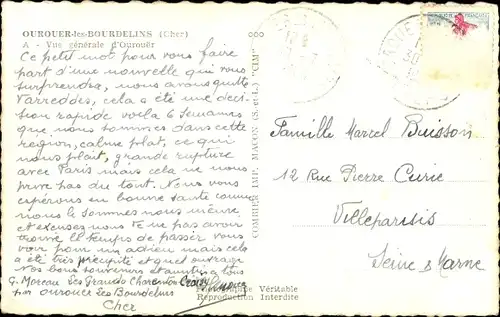 OUROUER-les-BOURDELINS (Cher)
A - Vue générale d'Ourouër
Ce petit mot pour vous faire
part d'une nouvelle qui vous
surprendra, nous avons quitté
Varreddes, cela a été une déci-
sion rapide voilà 6 semaines
que nous sommes dans cette
région, calme plat, ce qui
nous plait, grande rupture
avec Paris mais cela ne nous
prive pas du tout. Nous vous
espérons en bonne santé comme
nous le sommes nous même.
Excusez nous de ne pas avoir
trouvé le temps de passer vous
voir pour un adieu mais cela
a été très précipité et quel ouvrage
Nos bons souvenirs et amitiés à tous
G. Moreau Les Grands Charentons
par Ourouer Les Bourdelins
Cher
COMBIER IMP. MACON (S.-et-L.) "CIM"
Famille Marcel Buisson
12 Rue Pierre Curie
Villeparisis
Seine & Marne
Photographie Véritable
Reproduction Interdite